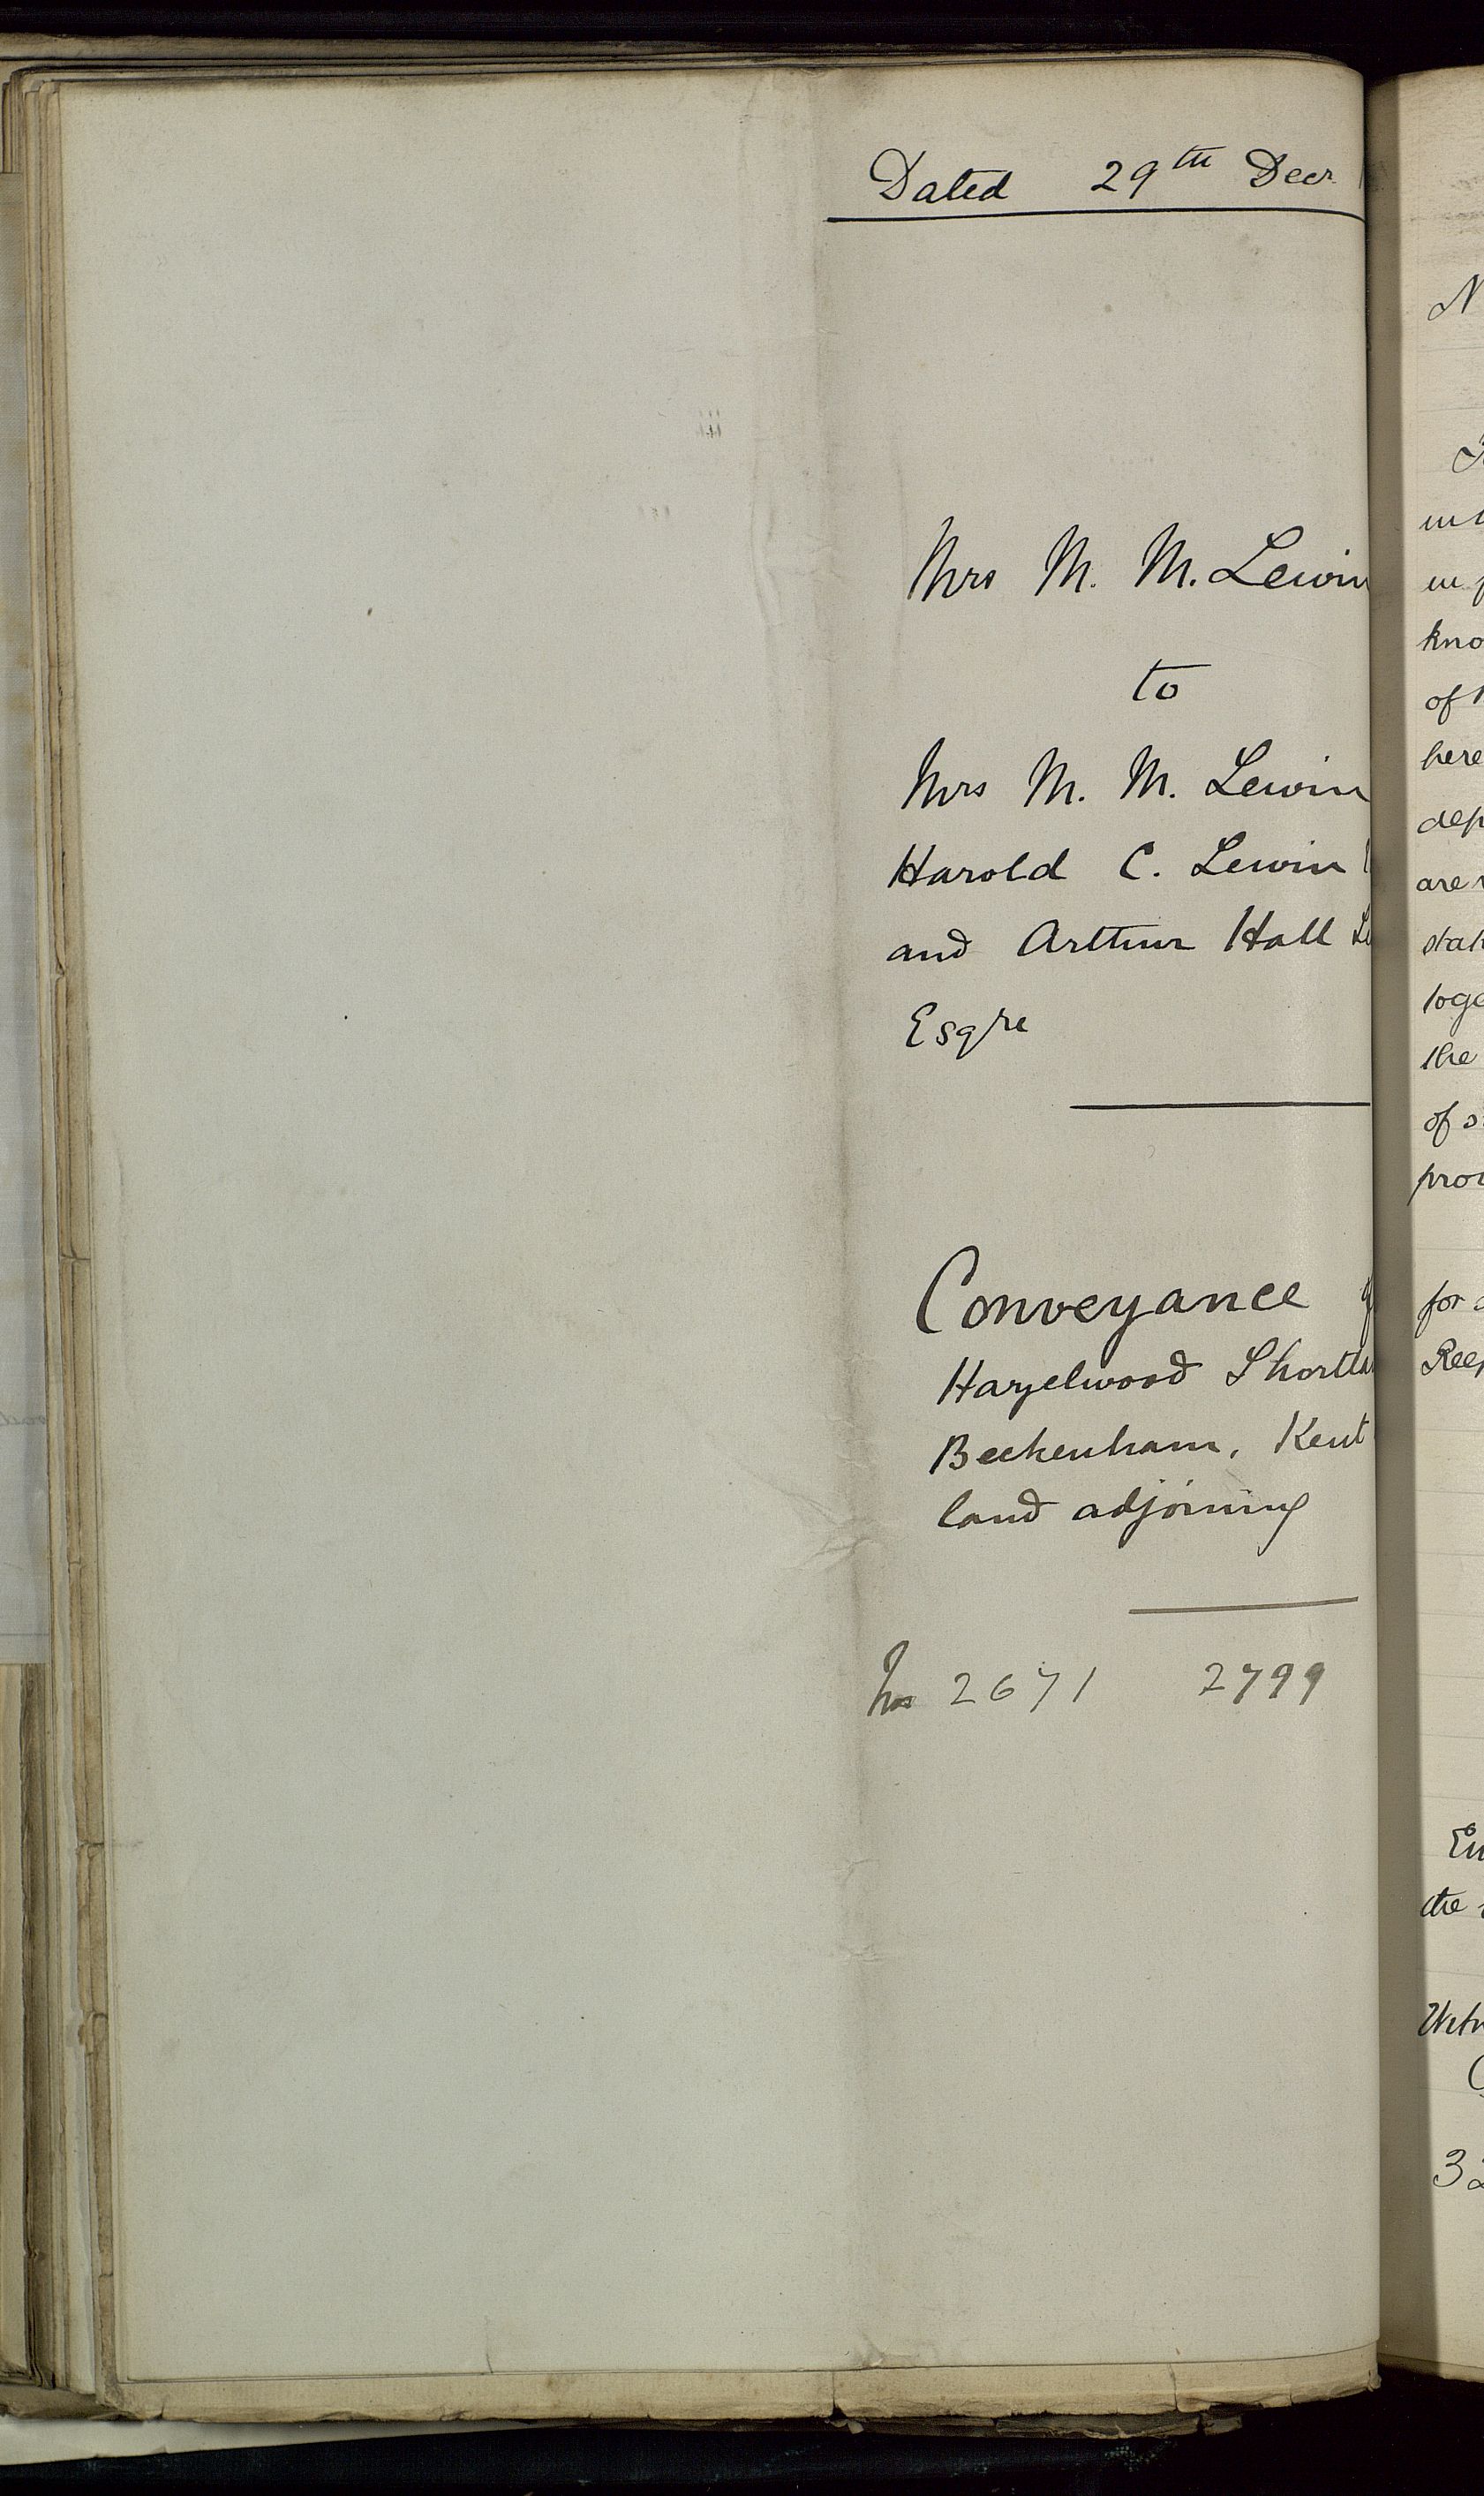 Dated 29th Decr
Mrs M. M. Lewin
to
Mrs M. M. Lewin
Harold C. Lewin
and Arthur Hall
Esqre
Conveyance
Hazelwood
Beckenham, Kent
land adjoining
Nos 2671 2799
N
in
kno
of
here
dep
are
stat
toge
the
of s
prov
for
Reep
En
the
Witn
32